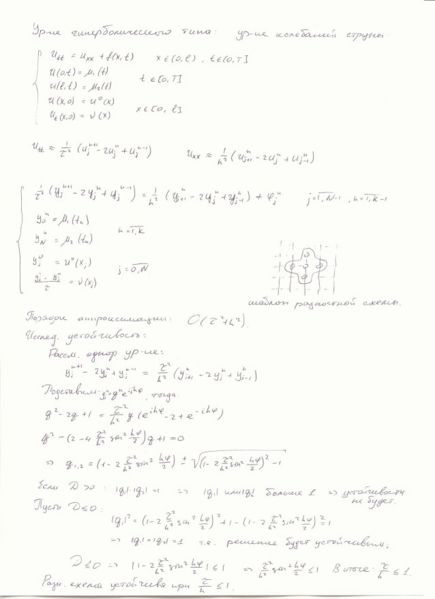 Ур-ие гиперболического типа: ур-ие колебаний струны.
u_tt = u_xx + f(x,t)   x∈(0,l), t∈(0,T]
u(0,t) = μ₁(t)
u(l,t) = μ₂(t)   t∈[0,T]
u(x,0) = u⁰(x)
u_t(x,0) = ν(x)   x∈[0,l]
u_tt ≈ 1/τ² (u_j^{n+1} - 2u_j^n + u_j^{n-1})   u_xx ≈ 1/h² (u_{j+1}^n - 2u_j^n + u_{j-1}^n)
1/τ² (y_j^{n+1} - 2y_j^n + y_j^{n-1}) = 1/h² (y_{j+1}^n - 2y_j^n + y_{j-1}^n) + φ_j^n   j=1,N-1, n=1,K
y_0^n = μ₁(t_n)
y_N^n = μ₂(t_n)   n=1,K
y_j^0 = u⁰(x_j)
(y_j^1 - y_j^0)/τ = ν(x_j)   j=0,N
шаблон разностной схемы.
Порядок аппроксимации: O(τ²+h²)
Исслед. устойчивость:
Рассм. однор ур-ие:
y_j^{n+1} - 2y_j^n + y_j^{n-1} = τ²/h² (y_{j+1}^n - 2y_j^n + y_{j-1}^n)
Подставим: y_j^n = g^n e^{ijhφ}, тогда
g² - 2g + 1 = τ²/h² g (e^{ihφ} - 2 + e^{-ihφ})
g² - (2 - 4 τ²/h² sin² hφ/2) g + 1 = 0
⇒ g_{1,2} = (1 - 2 τ²/h² sin² hφ/2) ± √((1 - 2 τ²/h² sin² hφ/2)² - 1)
Если D>0: |g₁|·|g₂| = 1 ⇒ |g₁| или |g₂| больше 1 ⇒ устойчивости
не будет.
Пусть D≤0:
|g|² = (1 - 2 τ²/h² sin² hφ/2)² + 1 - (1 - 2 τ²/h² sin² hφ/2)² = 1
⇒ |g₁| = |g₂| = 1 т.е. решение будет устойчивым.
D≤0 ⇒ |1 - 2 τ²/h² sin² hφ/2| ≤ 1 ⇒ τ²/h² sin² hφ/2 ≤ 1   В итоге: τ/h ≤ 1.
Разн. схема устойчива при τ/h ≤ 1.